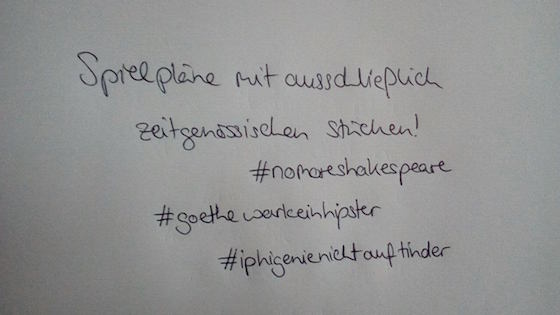 Spielpläne mit ausschließlich
zeitgenössischen Stücken!
#nomoreshakespeare
#goethewarkeinhipster
#iphigenienichtauftinder